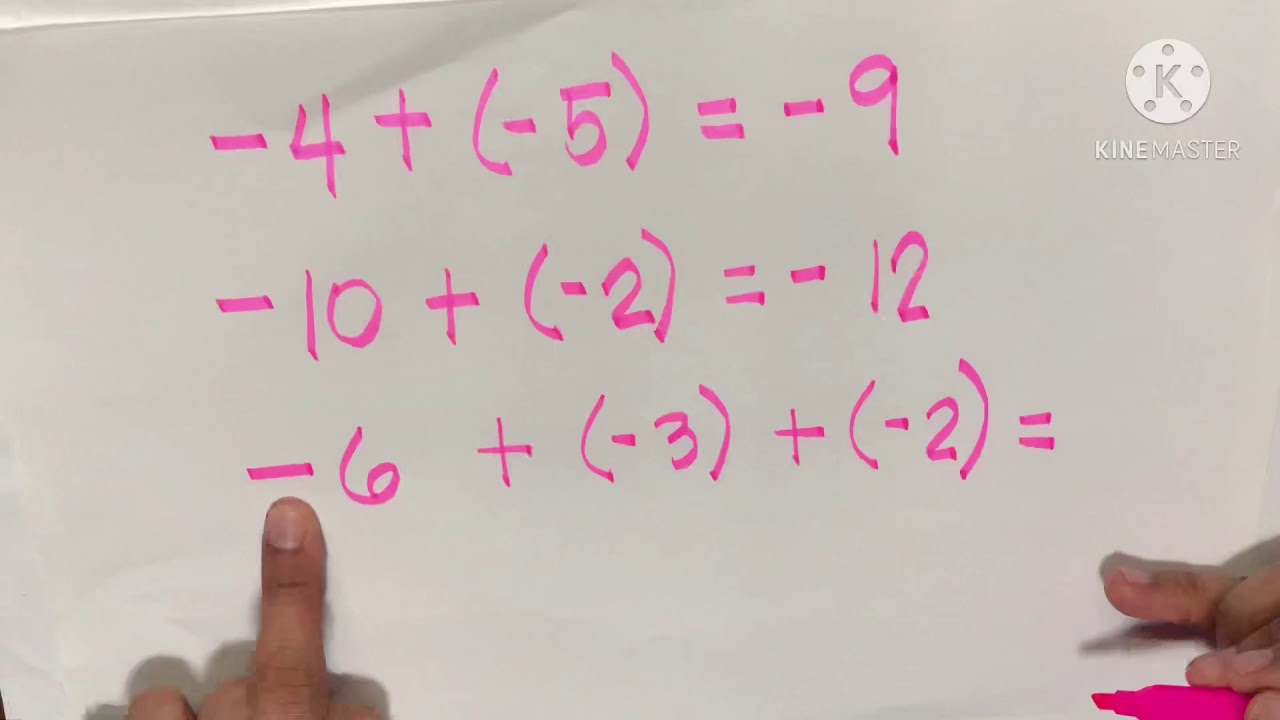 -4 + (-5) = -9
K
KINEMASTER
-10 + (-2) = -12
-6 + (-3) + (-2) =